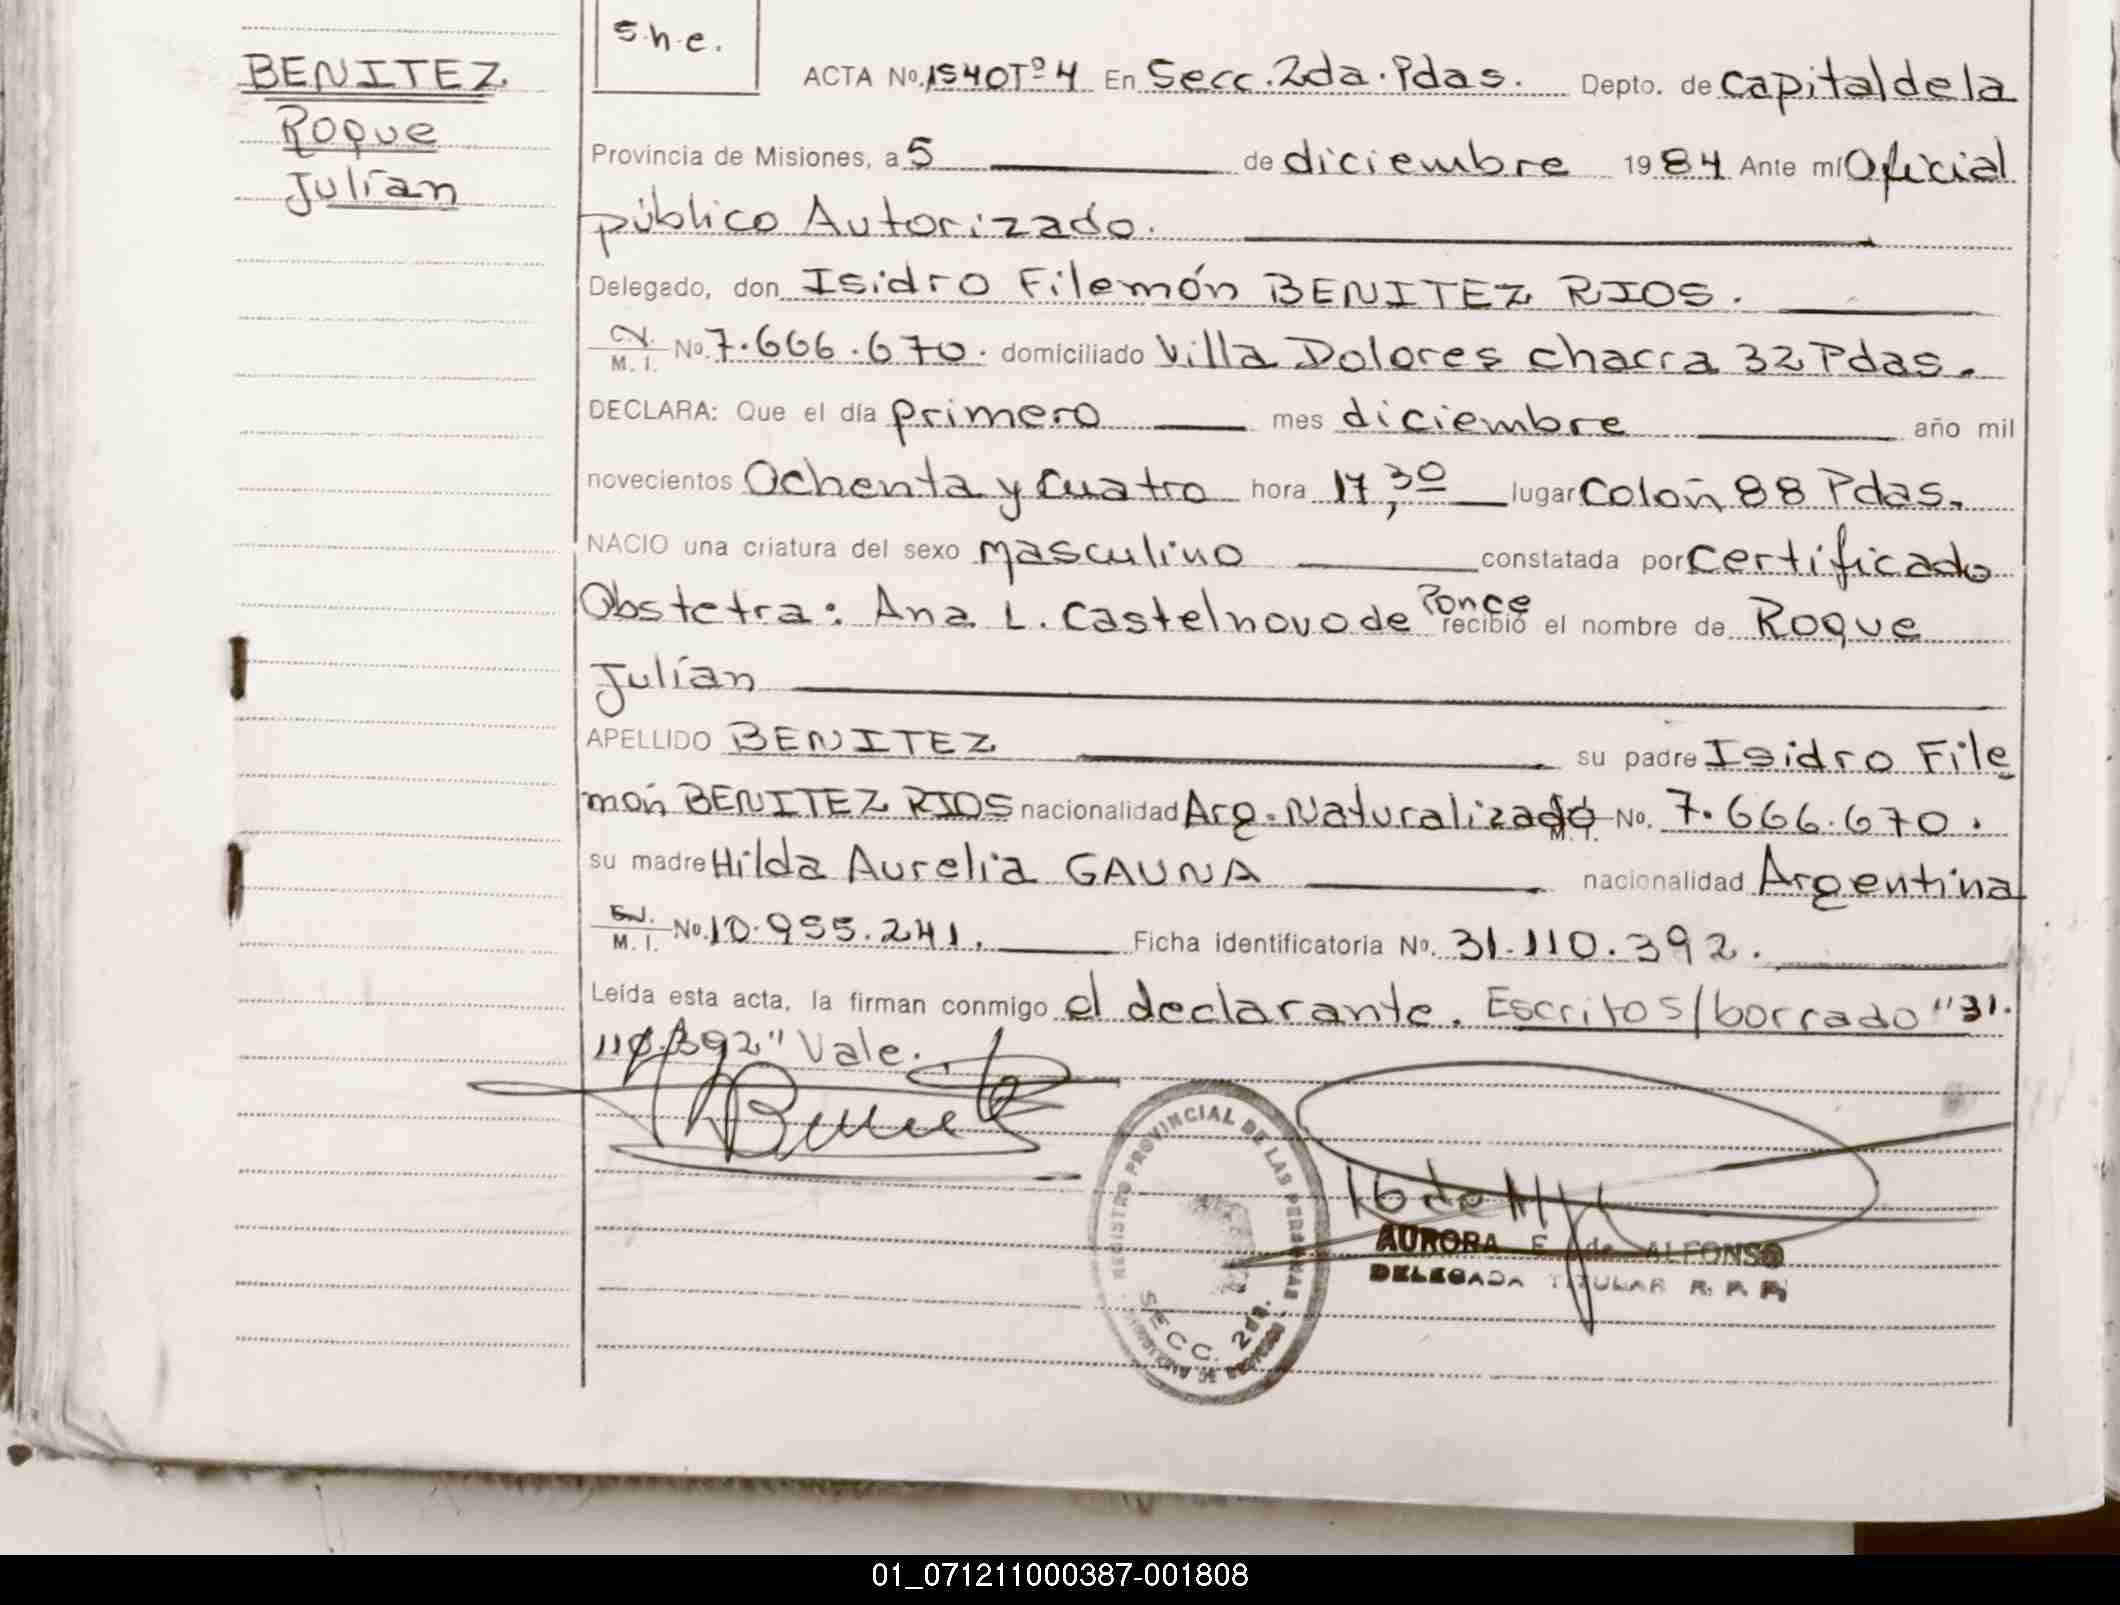 BENITEZ
Roque
Julián
S.h.e.
ACTA No. 1540Tº4 En Secc. 2da. Pdas. Depto. de Capital de la
Provincia de Misiones, a 5 de diciembre 1984 Ante mí Oficial
público Autorizado.
Delegado, don Isidro Filemón BENITEZ RIOS.
M. I. No. 7.666.670. domiciliado Villa Dolores chacra 32 Pdas.
DECLARA: Que el día primero mes diciembre año mil
novecientos Ochenta y cuatro hora 17,30 lugar Colón 88 Pdas.
NACIO una criatura del sexo masculino constatada por certificado
Obstetra: Ana L. Castelnovo de Ponce recibió el nombre de Roque
Julián
APELLIDO BENITEZ su padre Isidro File
món BENITEZ RIOS nacionalidad Arg. Naturalizado M. I. No. 7.666.670.
su madre Hilda Aurelia GAUNA nacionalidad Argentina
M. I. No. 10.955.241. Ficha identificatoria No. 31.110.392.
Leída esta acta, la firman conmigo el declarante. Escritos/borrado "31.
110.392" Vale.
REGISTRO PROVINCIAL DE LAS PERSONAS
SECC. 2da.
AURORA E. de ALFONSO
DELEGADA TITULAR R. P. P.
01_071211000387-001808